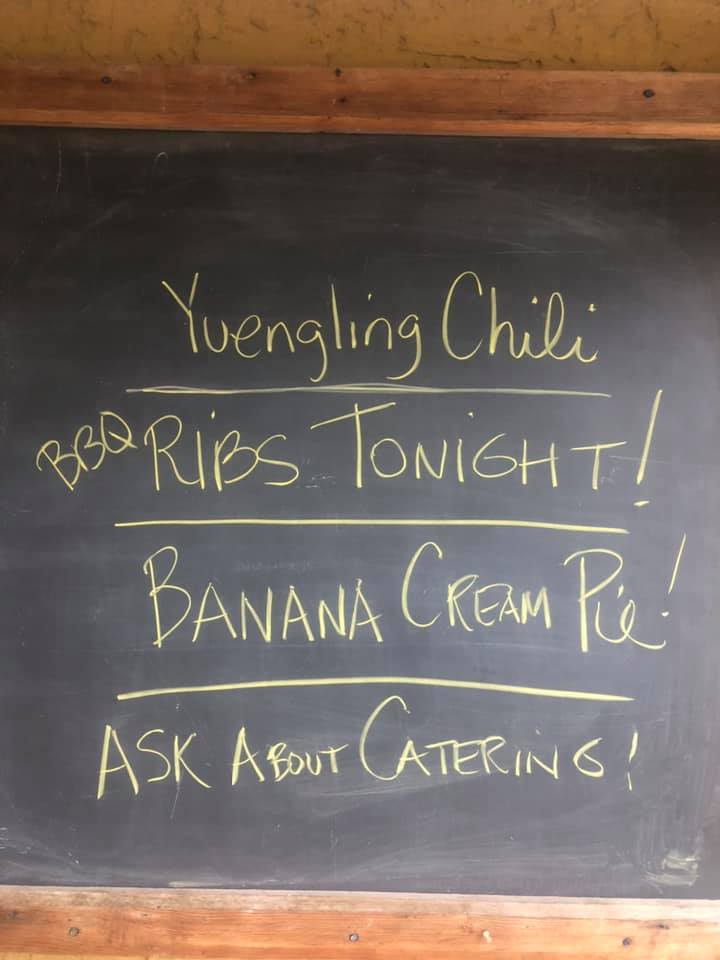 Yuengling Chili
BBQ RIBS TONIGHT!
BANANA CREAM PIE!
ASK ABOUT CATERING!